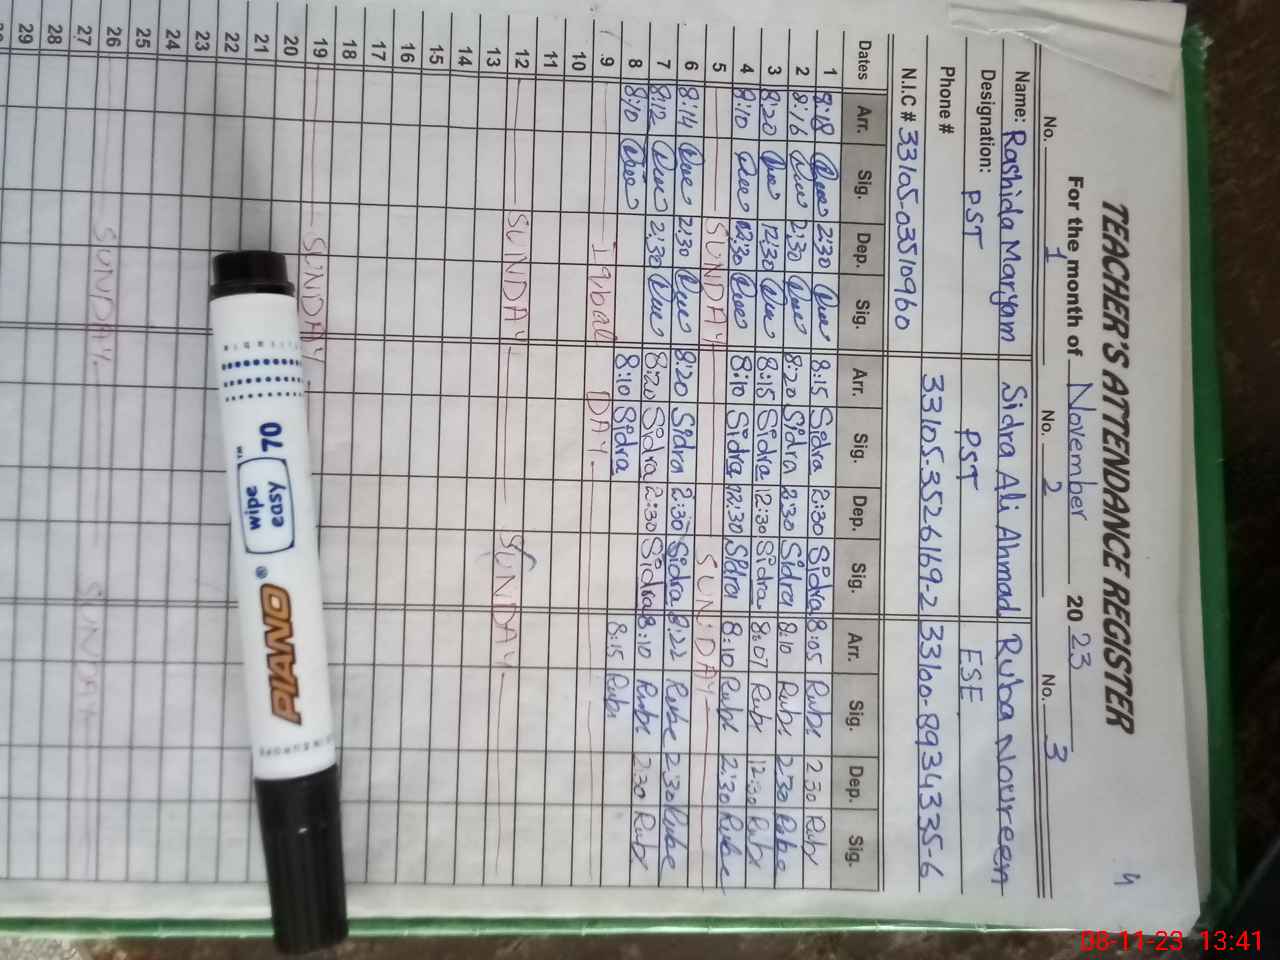 4
TEACHER'S ATTENDANCE REGISTER
For the month of November 2023
No. 1 No. 2 No. 3
Name: Rashida Maryam Sidra Ali Ahmad Ruba Noureen
Designation: PST PST ESE
Phone #
N.I.C # 33105-03510960 33105-3526169-2 33100-8934335-6
Dates Arr. Sig. Dep. Sig. Arr. Sig. Dep. Sig. Arr. Sig. Dep. Sig.
1 8:18 2:30 8:15 Sidra 2:30 Sidra 8:05 Rubi 2:30 Rubi
2 8:16 2:30 8:20 Sidra 2:30 Sidra 8:10 Rubi 2:30 Rubae
3 8:20 12:30 8:15 Sidra 12:30 Sidra 8:07 Rubi 12:30 Rubi
4 8:10 12:30 8:10 Sidra 12:30 Sidra 8:10 Rubi 2:30 Rubae
5 SUNDAY SUNDAY
6 8:14 2:30 8:20 Sidra 2:30 Sidra 8:22 Rubae 2:30 Rubae
7 8:12 2:30 8:20 Sidra 2:30 Sidra 8:10 Rubi 2:30 Rubi
8 8:10 8:10 Sidra 8:15 Rubi
9 Iqbal DAY
10
11
12 SUNDAY SUNDAY
13
14
15
16
17
18
19 SUNDAY
20
21
22
23
24
25
26 SUNDAY SUNDAY
27
28
29
70
easy
wipe
PIANO
08-11-23 13:41